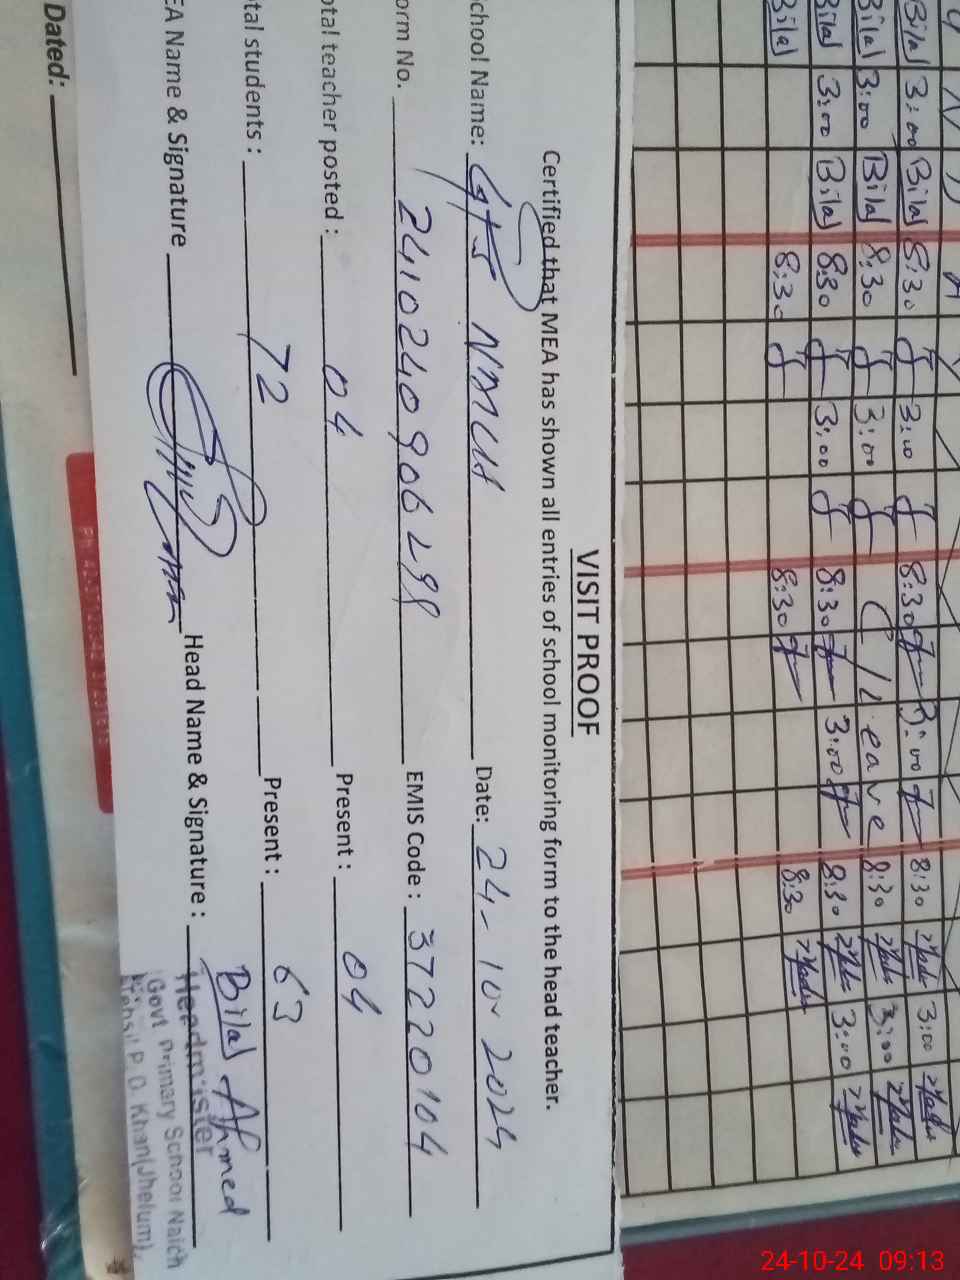 Bilal 3:00 Bilal 8:30 3:00 8:30 3:00 8:30 3:00
Bilal 3:00 Bilal 8:30 3:00 C/Leave 8:30 3:00
Bilal 3:00 Bilal 8:30 3:00 8:30 3:00 8:30 3:00
Bilal 8:30 8:30 8:30
VISIT PROOF
Certified that MEA has shown all entries of school monitoring form to the head teacher.
chool Name: GPS Date: 24-10-2024
orm No. EMIS Code: 37220104
otal teacher posted: 04 Present: 04
tal students: 72 Present: 63
EA Name & Signature Head Name & Signature: Bilal Ahmed
Headmister
Govt Primary School Naich
Tehsil P. D. Khan(Jhelum).
Dated:
24-10-24 09:13